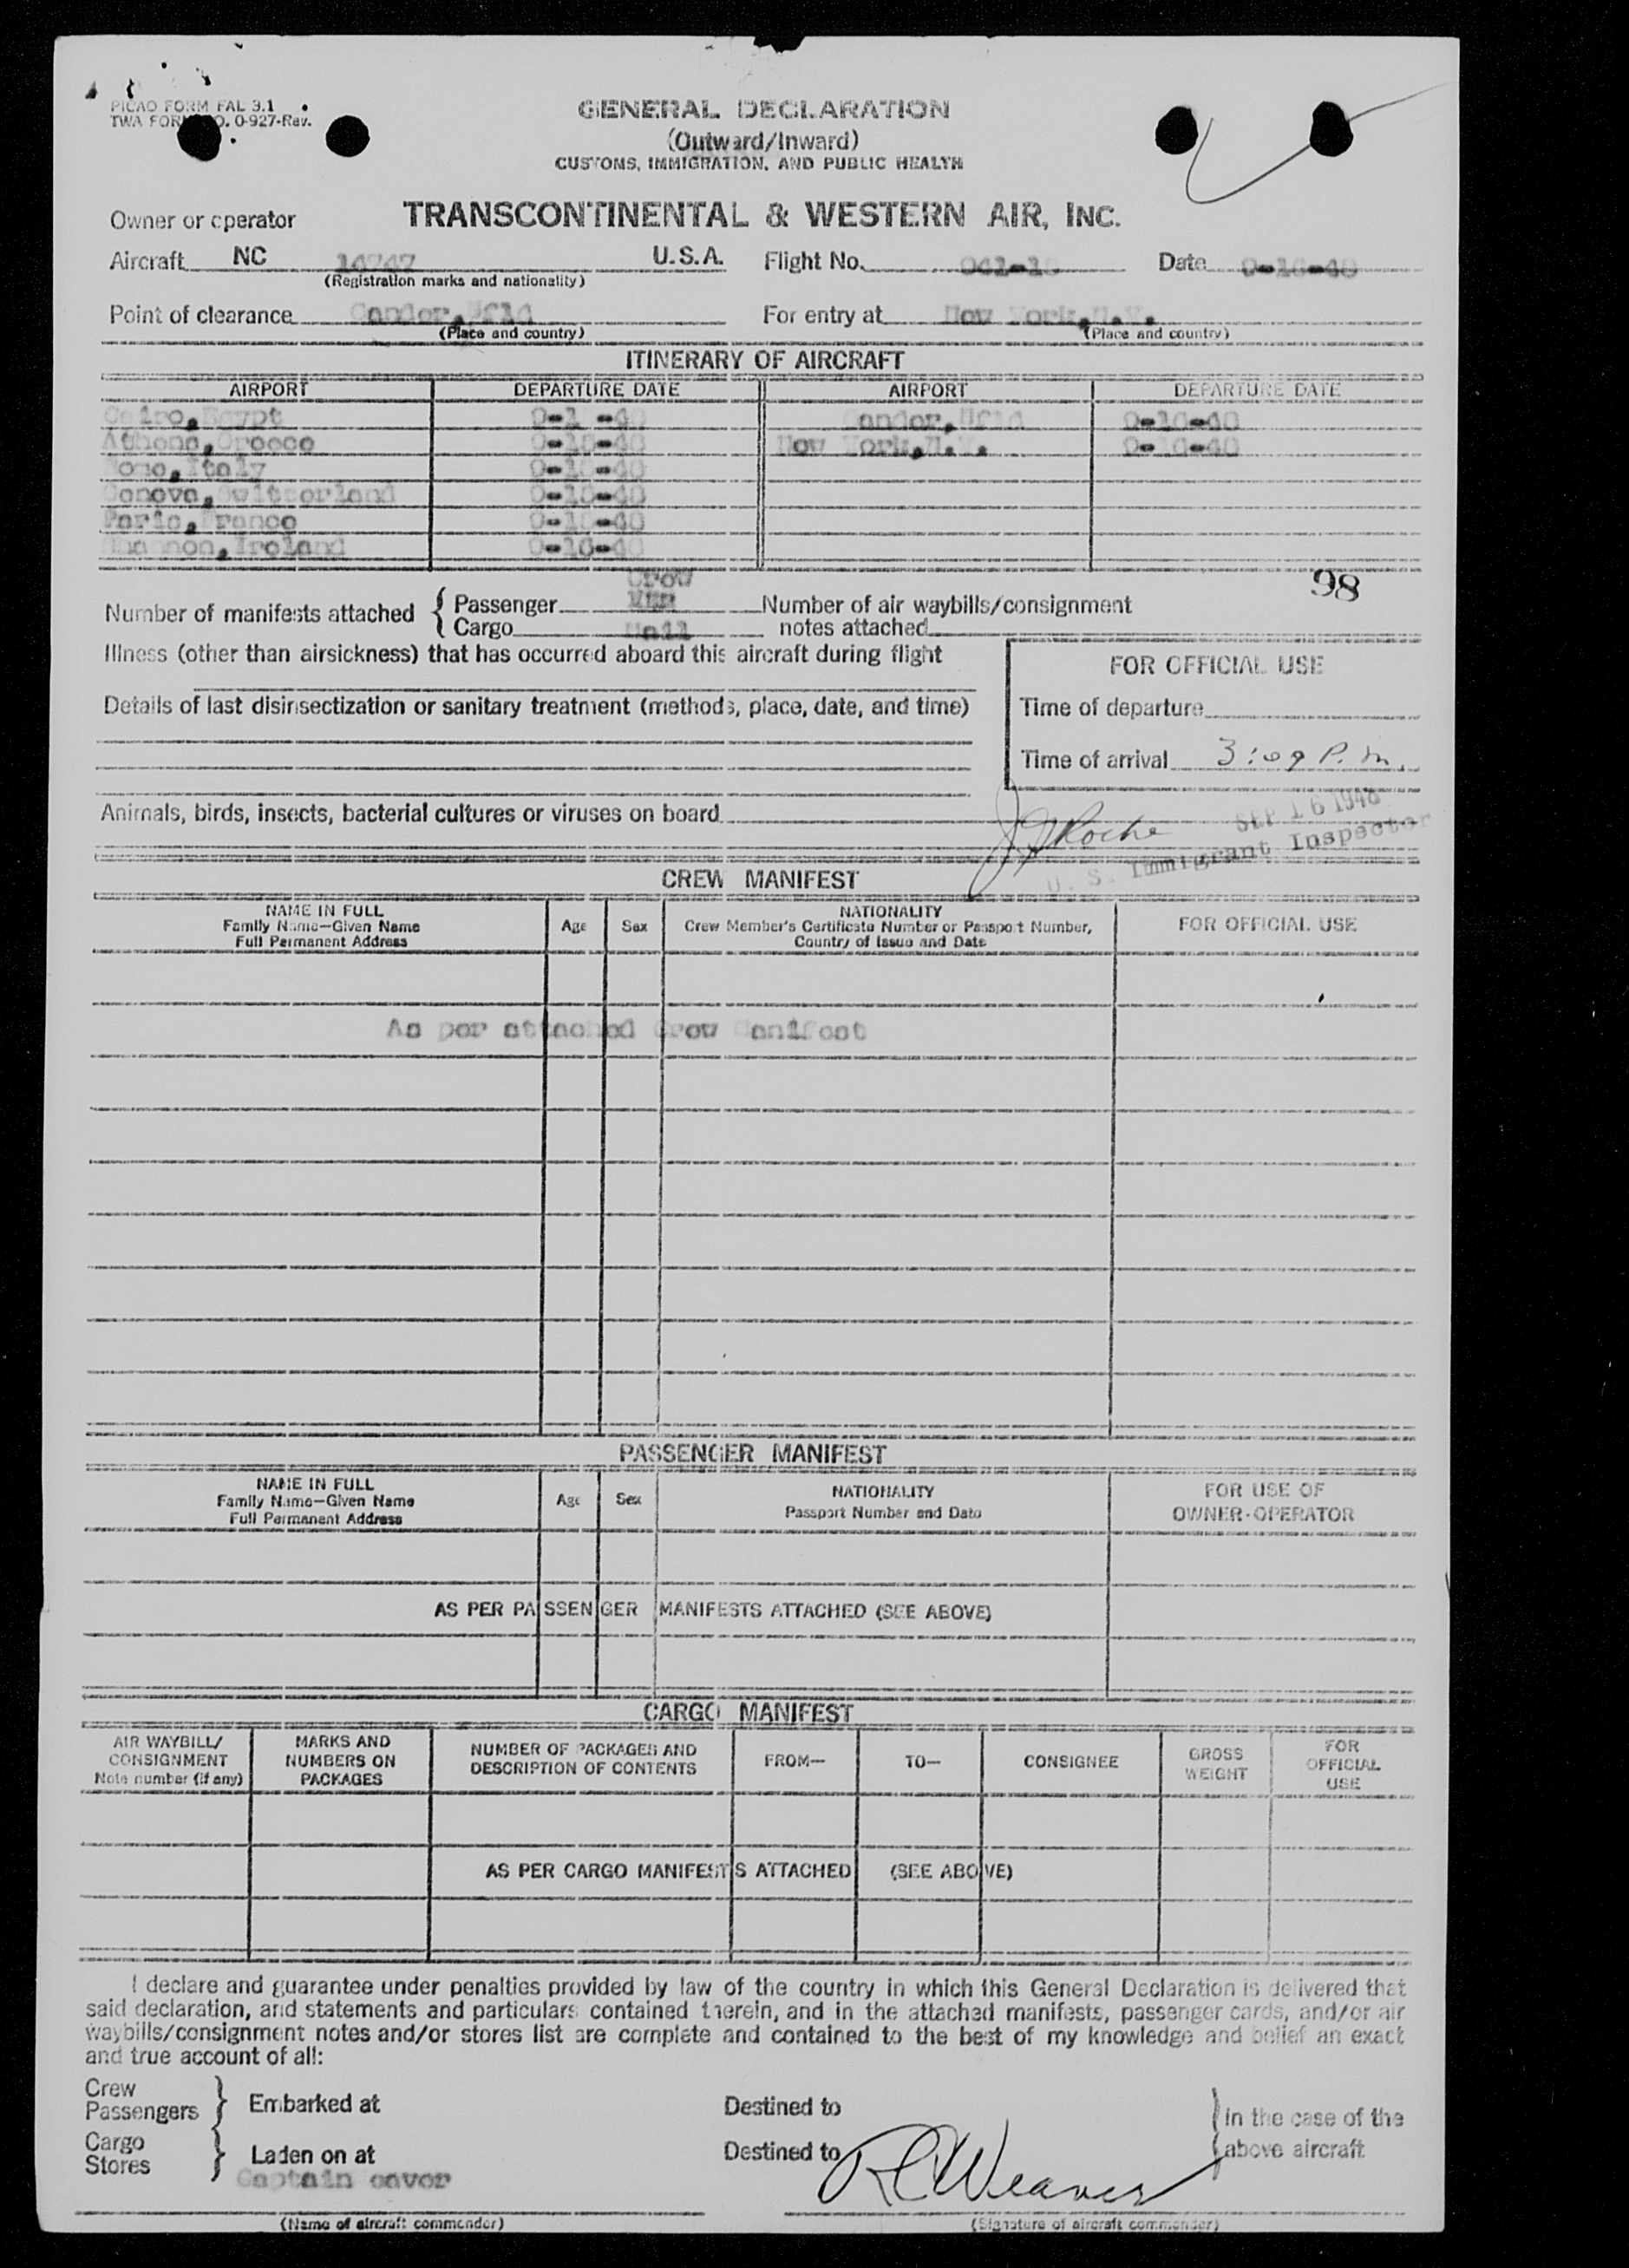 PICAO FORM FAL 3.1
TWA FORM NO. 0-927-Rev.
GENERAL DECLARATION
(Outward/Inward)
CUSTOMS, IMMIGRATION, AND PUBLIC HEALTH
Owner or operator TRANSCONTINENTAL & WESTERN AIR, INC.
Aircraft NC 14747 U.S.A. Flight No. Date
(Registration marks and nationality)
Point of clearance Gander, Nfld For entry at New York, N.Y.
(Place and country) (Place and country)
ITINERARY OF AIRCRAFT
AIRPORT DEPARTURE DATE AIRPORT DEPARTURE DATE
Cairo, Egypt Gander, Nfld 9-16-48
Athens, Greece 9-15-48 New York, N.Y. 9-16-48
Rome, Italy 9-15-48
Geneva, Switzerland 9-15-48
Paris, France 9-15-48
Shannon, Ireland 9-16-48
98
Crow
Number of manifests attached { Passenger Number of air waybills/consignment
Cargo Mail notes attached
Illness (other than airsickness) that has occurred aboard this aircraft during flight
FOR OFFICIAL USE
Details of last disinsectization or sanitary treatment (methods, place, date, and time)
Time of departure
Time of arrival 3:09 P.m.
Animals, birds, insects, bacterial cultures or viruses on board
J Roche SEP 16 1948
U. S. Immigrant Inspector
CREW MANIFEST
NAME IN FULL
Family Name—Given Name
Full Permanent Address
Age Sex
NATIONALITY
Crew Member's Certificate Number or Passport Number,
Country of Issue and Date
FOR OFFICIAL USE
As per attached Crew Manifest
PASSENGER MANIFEST
NAME IN FULL
Family Name—Given Name
Full Permanent Address
Age Sex
NATIONALITY
Passport Number and Date
FOR USE OF
OWNER-OPERATOR
AS PER PASSENGER MANIFESTS ATTACHED (SEE ABOVE)
CARGO MANIFEST
AIR WAYBILL/
CONSIGNMENT
Note number (if any)
MARKS AND
NUMBERS ON
PACKAGES
NUMBER OF PACKAGES AND
DESCRIPTION OF CONTENTS
FROM— TO— CONSIGNEE
GROSS
WEIGHT
FOR
OFFICIAL
USE
AS PER CARGO MANIFESTS ATTACHED (SEE ABOVE)
I declare and guarantee under penalties provided by law of the country in which this General Declaration is delivered that
said declaration, and statements and particulars contained therein, and in the attached manifests, passenger cards, and/or air
waybills/consignment notes and/or stores list are complete and contained to the best of my knowledge and belief an exact
and true account of all:
Crew
Passengers } Embarked at Destined to } In the case of the
Cargo
Stores } Laden on at Destined to above aircraft
Captain Weaver RC Weaver
(Name of aircraft commander) (Signature of aircraft commander)